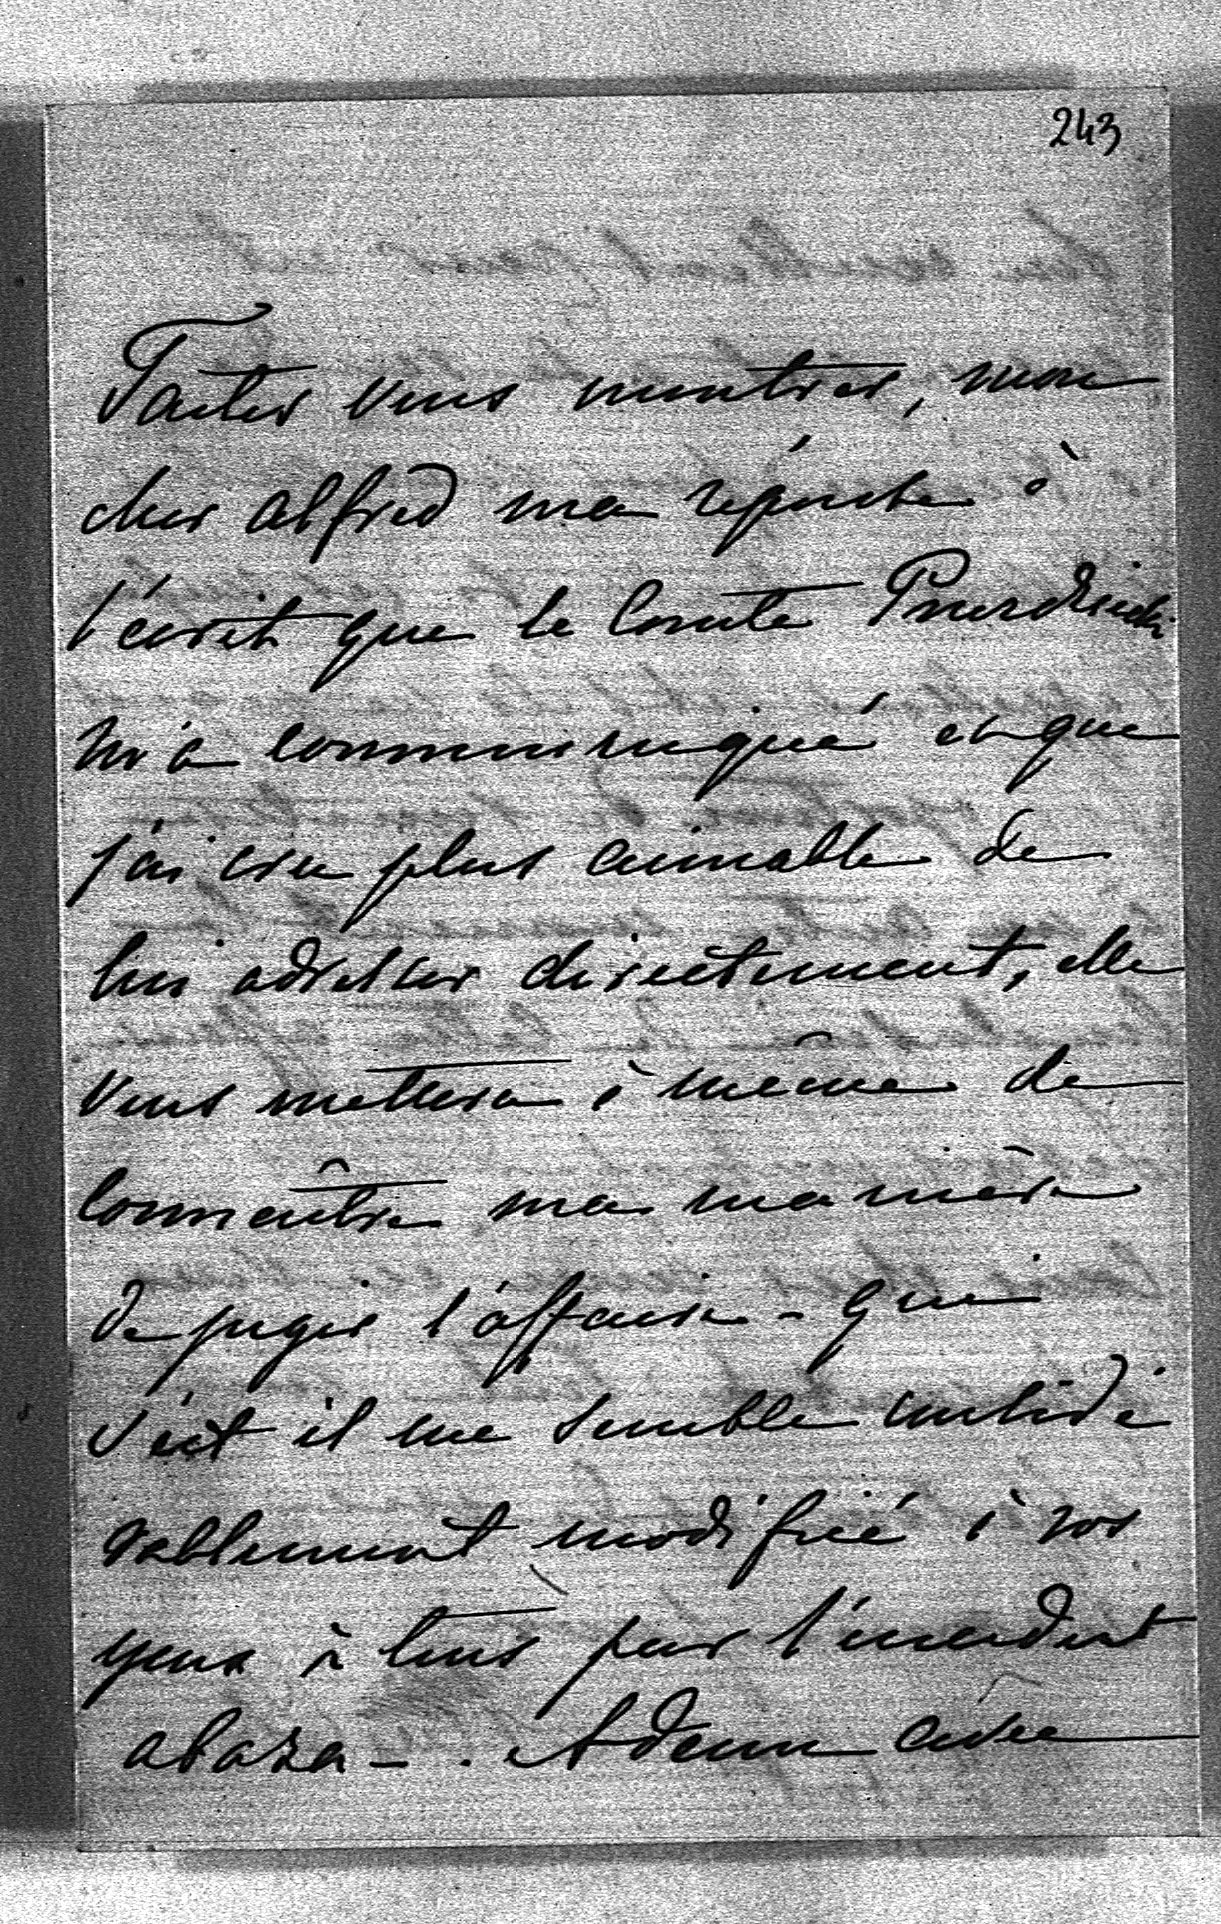 243
Faites vous montrer, mon
cher Alfred ma réponse à
l'écrit que le Comte
m'a communiqué et que
j'ai cru plus aimable de
lui adresser directement, elle
vous mettera à même de
connaître ma manière
de juger l'affaire - qui
s'est il me semble considé
rablement modifié à nos
yeux à tous par l'incident
abaza - . Adieu cher